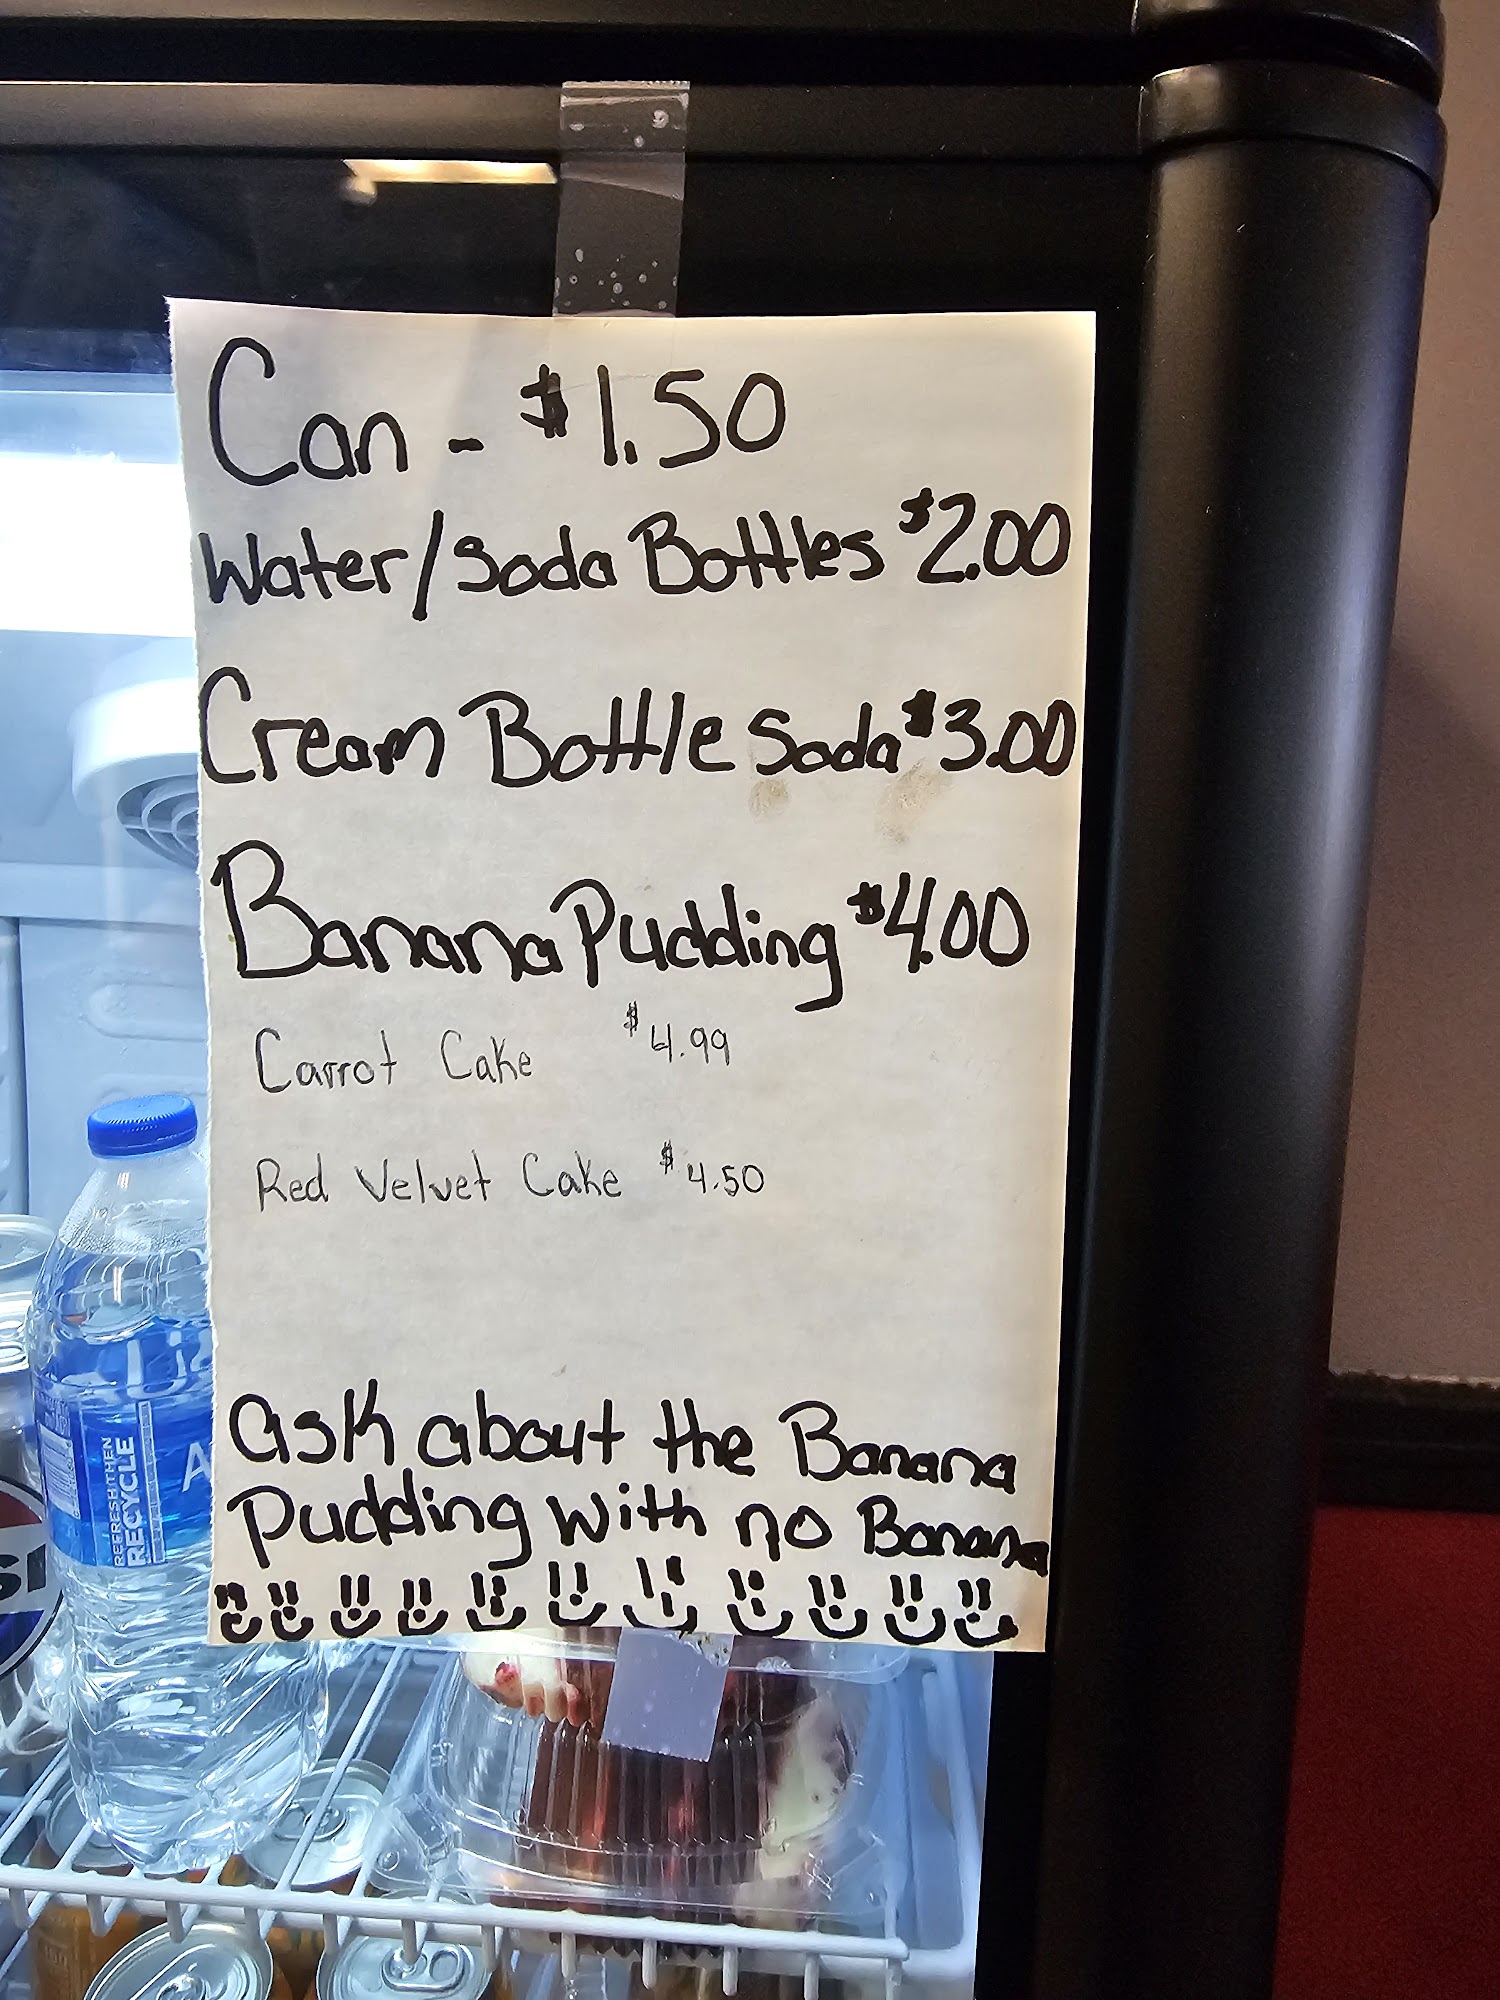 Can - $1.50
Water/Soda Bottles $2.00
Cream Bottle Soda $3.00
Banana Pudding $4.00
Carrot Cake $4.99
Red Velvet Cake $4.50
ask about the Banana
Pudding with no Banana
REFRESH THEN
RECYCLE
A
SI